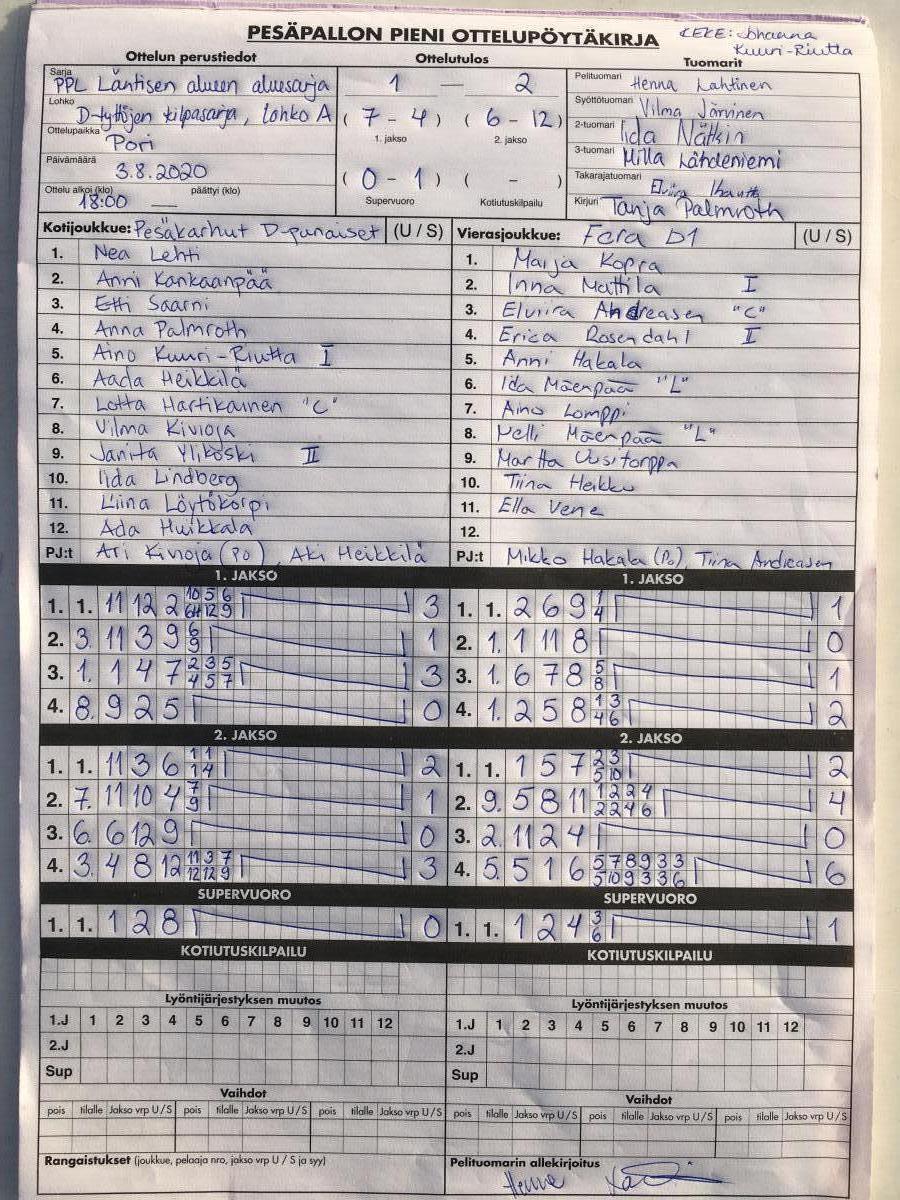 PESÄPALLON PIENI OTTELUPÖYTÄKIRJA
KEKE: Johanna
Kuuri-Riutta
Ottelun perustiedot
Ottelutulos
Tuomarit
Sarja PPL Läntisen alueen aluesarja
Lohko D-tyttöjen kilpasarja, lohko A
Ottelupaikka Pori
Päivämäärä 3.8.2020
Ottelu alkoi (klo) päättyi (klo)
18:00
1 — 2
( 7 - 4 ) ( 6 - 12 )
1. jakso 2. jakso
( 0 - 1 ) ( - )
Supervuoro Kotiutuskilpailu
Pelituomari Henna Lahtinen
Syöttötuomari Vilma Järvinen
2-tuomari Iida Nätkin
3-tuomari Milla Lähdeniemi
Takarajatuomari Elviira
Kirjuri Tanja Palmroth
Kotijoukkue: Pesäkarhut D-punaiset (U / S)
1. Nea Lehti
2. Anni Kankaanpää
3. Etti Saarni
4. Anna Palmroth
5. Aino Kuuri-Riutta I
6. Aada Heikkilä
7. Lotta Hartikainen "C"
8. Vilma Kivioja
9. Janita Ylikoski II
10. Iida Lindberg
11. Liina Löytökorpi
12. Ada Huikkala
PJ:t Ari Kivioja (Po), Aki Heikkilä
Vierasjoukkue: Fera D1 (U / S)
1. Maija Kopra
2. Inna Mattila I
3. Elviira Andreasen "C"
4. Erica Rosendahl I
5. Anni Hakala
6. Ida Mäenpää "L"
7. Aino Lomppi
8. Nelli Mäenpää "L"
9. Martta Uusitorppa
10. Tiina Heikko
11. Ella Vene
12.
PJ:t Mikko Hakala (Po), Tiina Andreasen
1. JAKSO
1. 1. 11 12 2 10 5 6 3
6 11 12 9
2. 3. 11 3 9 6 1
9
3. 1. 1 4 7 2 3 5 3
4 5 7
4. 8. 9 2 5 0
2. JAKSO
1. 1. 11 3 6 1 1 2
1 4
2. 7. 11 10 4 7 1
9
3. 6. 6 12 9 0
4. 3. 4 8 12 11 3 7 3
12 12 9
SUPERVUORO
1. 1. 1 2 8 0
KOTIUTUSKILPAILU
1. JAKSO
1. 1. 2 6 9 1 1
4
2. 1. 1 11 8 0
3. 1. 6 7 8 5 1
8
4. 1. 2 5 8 1 3 2
4 6
2. JAKSO
1. 1. 1 5 7 2 3 2
5 10
2. 9. 5 8 11 1 2 2 4 4
2 2 4 6
3. 2. 11 2 4 0
4. 5. 5 1 6 5 7 8 9 3 3 6
5 10 9 3 3 6
SUPERVUORO
1. 1. 1 2 4 3 1
6
KOTIUTUSKILPAILU
Lyöntijärjestyksen muutos
1.J 1 2 3 4 5 6 7 8 9 10 11 12
2.J
Sup
Vaihdot
pois tilalle Jakso vrp U / S pois tilalle Jakso vrp U / S pois tilalle Jakso vrp U / S
Lyöntijärjestyksen muutos
1.J 1 2 3 4 5 6 7 8 9 10 11 12
2.J
Sup
Vaihdot
pois tilalle Jakso vrp U / S pois tilalle Jakso vrp U / S pois tilalle Jakso vrp U / S
Rangaistukset (joukkue, pelaaja nro, jakso vrp U / S ja syy)
Pelituomarin allekirjoitus
Henna